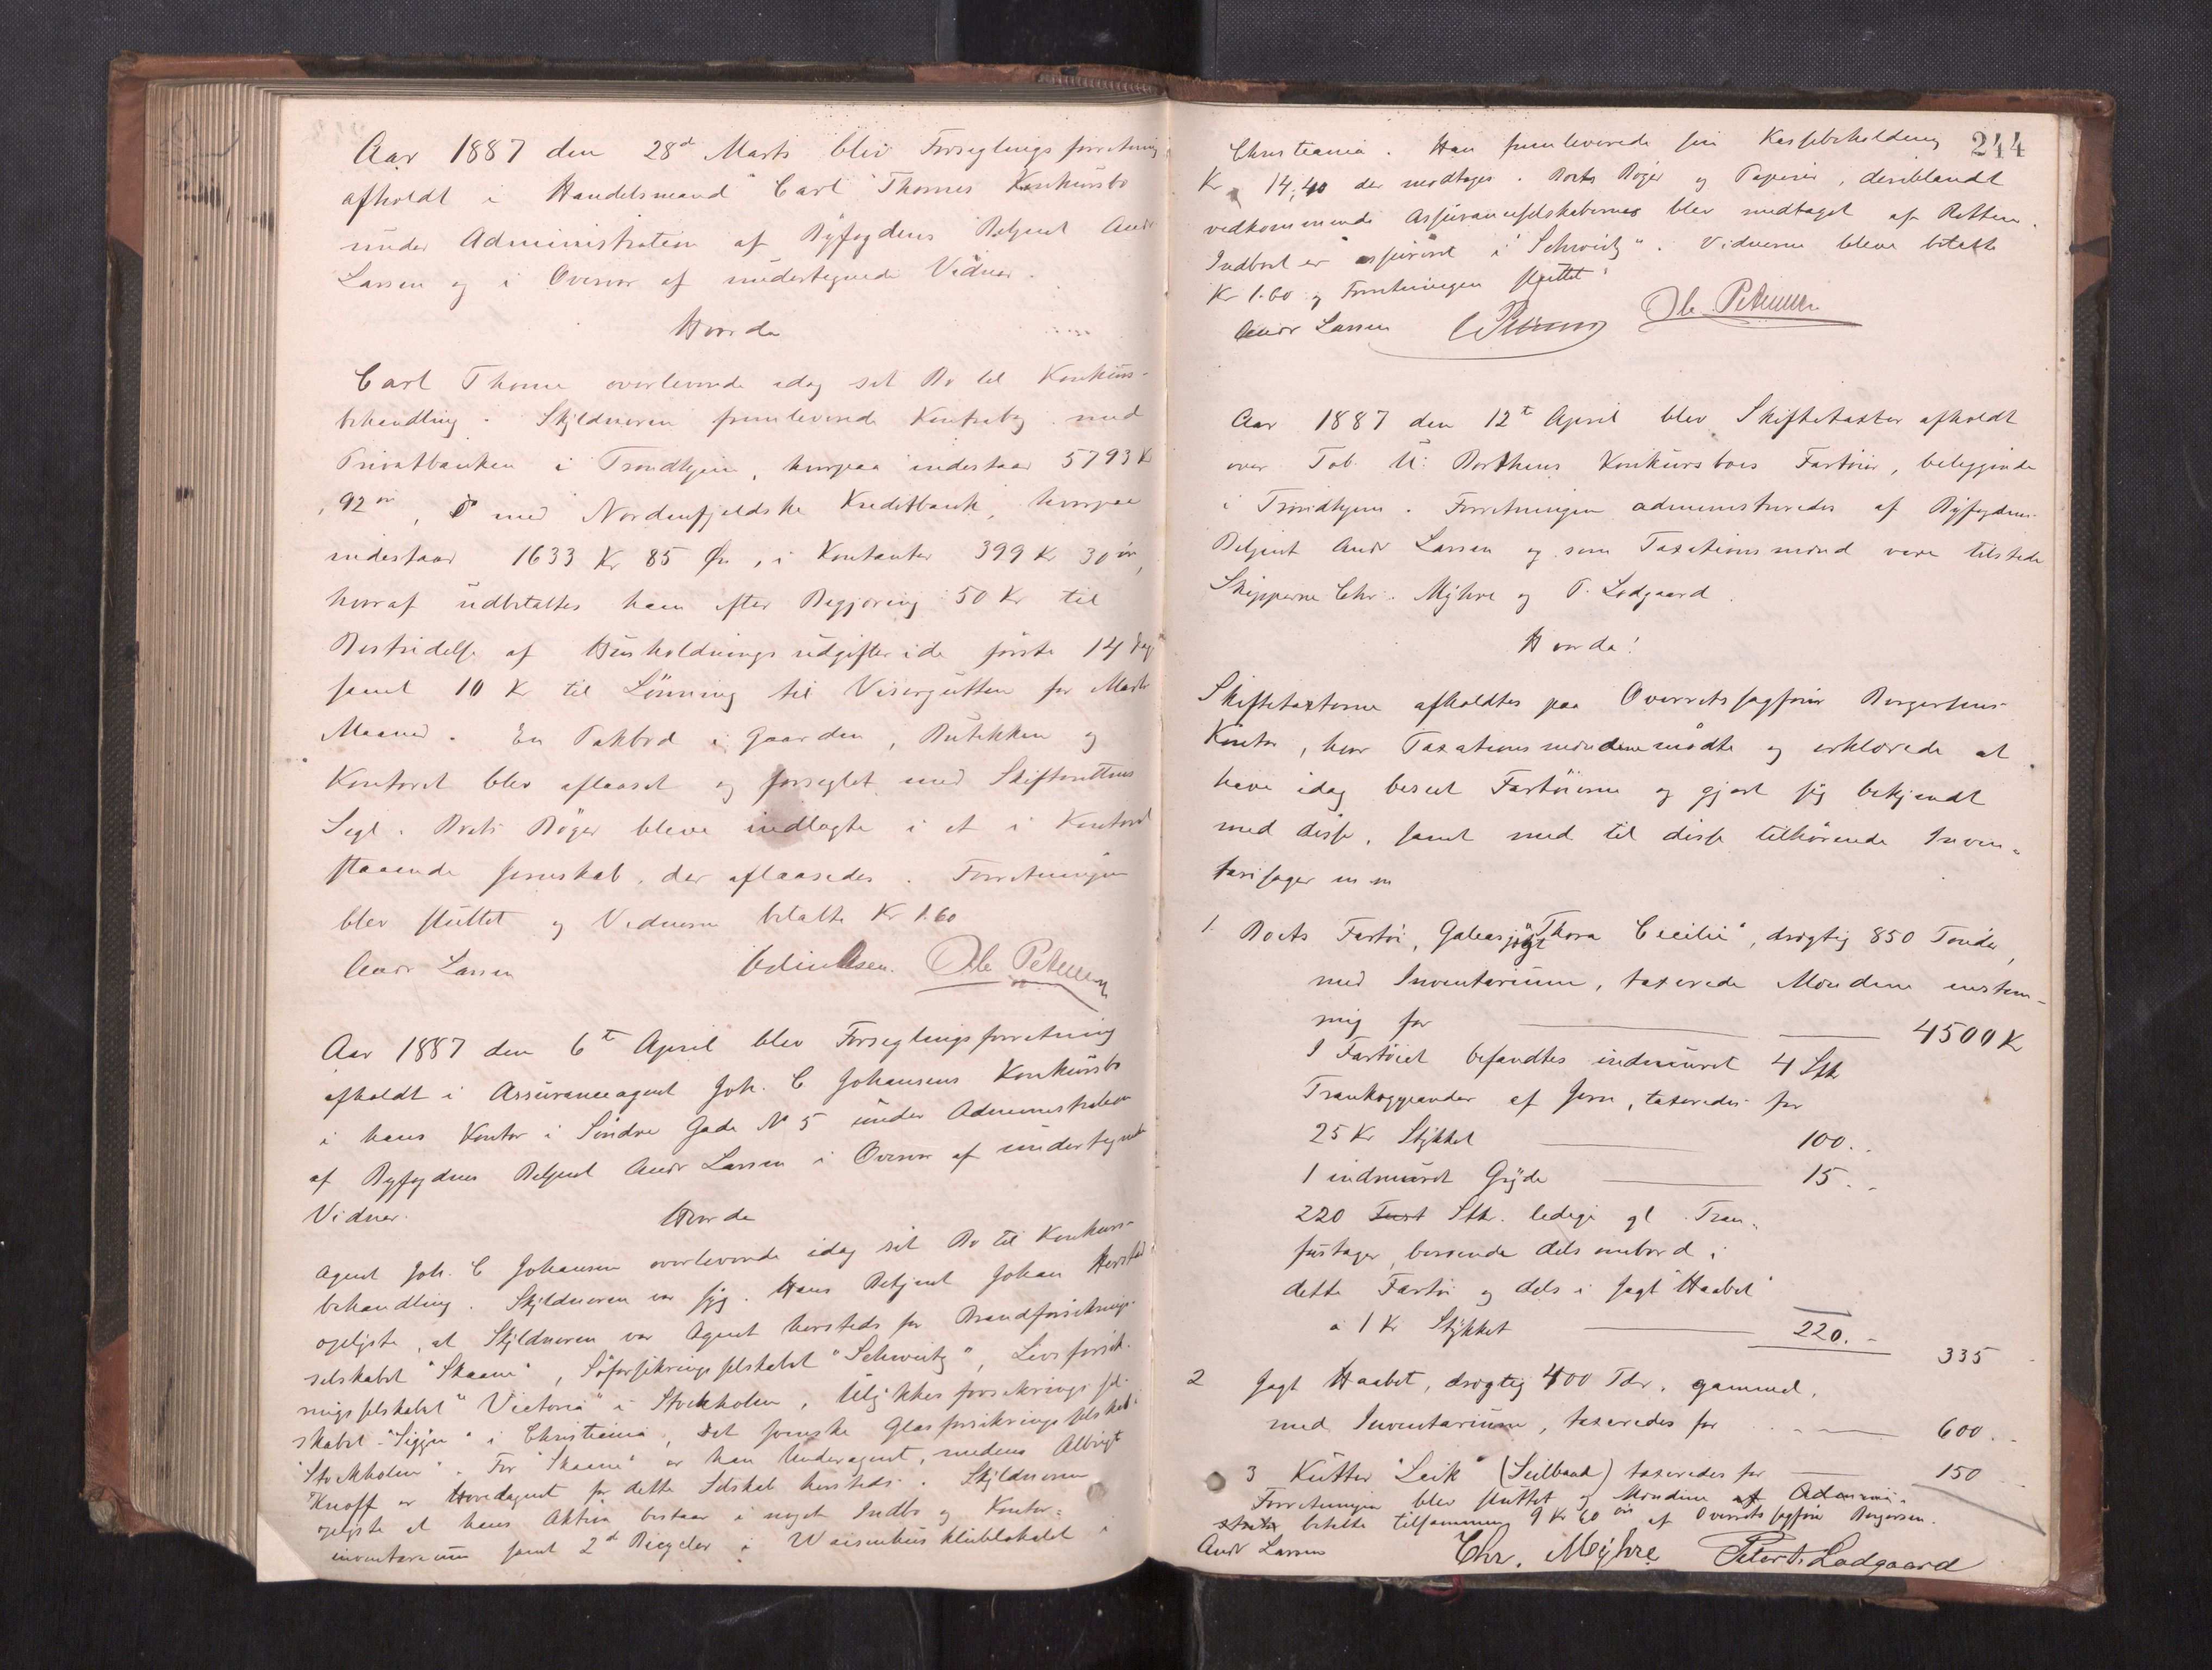 Aar 1887 den 28d Marts blev Forseglingsforretning
afholdt i Handelsmand Carl Thornes Konkursbo
under Administration af Byfogdens Betjent Andr
Larsen og i Overvær af undertegnede Vidner.
Hvorda
Carl Thorne overleverede idag sit Bo til Konkurs-
behandling. Skyldneren fremleverede Kontrabog med
Privatbanken i Trondhjem, hvorpaa indestaar 5793 Kr
92 ør, do med Nordenfjeldske Kreditbank, hvorpaa
indestaar 1633 Kr 85 Ør, i Kontanter 399 Kr 30 ør,
hvoraf udbetaltes ham efter Begjæring 50 Kr til
Bestridelse af Husholdningsudgifter i de første 14 Dage
samt 10 Kr til Lønning til Visergutten for Marts
Maaned. En Pakbod i Gaarden, Butikken og
Kontoret blev aflaaset og forseglet med Skifterettens
Segl. Boets Bøger bleve indlagte i et i Kontoret
staaende Jernskab, der aflaasedes. Forretningen
blev sluttet og Vidnerne betalte Kr 1.60
Andr Larsen Ole Petersen
Aar 1887 den 6t April blev Forseglingsforretning
afholdt i Assuranceagent Joh. C Johansens Konkursbo
i hans Kontor i Søndre Gade No 5 under Administration
af Byfogdens Betjent Andr Larsen i Overvær af undertegnede
Vidner.
Hvorda
Agent Joh. C Johansen overleverede idag sit Bo til Konkurs-
behandling. Skyldneren var syg. Hans Betjent Johan
oplyste, at Skyldneren var Agent hersteds for Brandforsikrings-
selskabet "Skaane", Søforsikringsselskabet "Schweitz", Livsforsik-
ringsselskabet "Victoria" i Stockholm, Ulykkesforsikringssel-
skabet "Sigyn" i Christiania, det svenske Glasforsikringsselskab i
Stockholm". For "Skaane" er han Underagent, medens Albrigt
Knoff er Hovedagent for dette Selskab hersteds. Skyldneren
oplyste at hans Aktiva bestaar i noget Indbo og Kontor-
inventarium samt 2d Bicycler i Waisenhusklublokalet i
244
Christiania. Han fremleverede sin Kassebeholdning
Kr 14,40 der modtoges. Boets Bøger og Papirer, deriblandt
vedkommende Assuranceselskabernes blev modtaget af Retten.
Indboet er assureret i "Schweitz". Vidnerne bleve betalte
Kr 1.60 og Forretningen sluttet
Andr Larsen Ole Petersen
Aar 1887 den 12t April blev Skiftetaxter afholdt
over Tob. U. Borthens Konkursboes Fartøier, beliggende
i Trondhjem. Forretningen administreredes af Byfogdens
Betjent Andr Larsen og som Taxationsmænd vare tilstede
Skipperne Chr. Myhre og P. Ladgaard.
Hvorda!
Skiftetaxterne afholdtes paa Overretssagfører Borgersens
Kontor, hvor Taxationsmændene mødte og erklærede at
have idag beseet Fartøierne og gjort sig bekjendt
med disse, samt med til disse tilhørende Inven-
tarisager m m
1. Boets Fartøi, Galeasjagt "Thora Cecilie", drægtig 850 Tønder,
med Inventarium, taxerede Mændene enstem-
mig for 4500 Kr
I Fartøiet befandtes indmuret 4 Stk
Trankoggeander af Jern, taxeredes for
25 Kr Stykket 100..
1 indmuret Gryde 15..
220 Stk. ledige gl. Tran-
fustager, beroende dels ombord i
dette Fartøi og dels i Jagt "Haabet"
a 1 Kr Stykket 220.-
335
2 Jagt Haabet, drægtig 400 Tdr, gammel,
med Inventarium, taxeredes for 600.-
3 Kutter "Leik" (Seilbaad) taxeredes for 150
Forretningen blev sluttet og Mændene af Admini-
strator betalte tilsammen 9 Kr 60 ør af Overretssagfører Borgersen.
Andr Larsen Chr. Myhre Peter A. Ladgaard